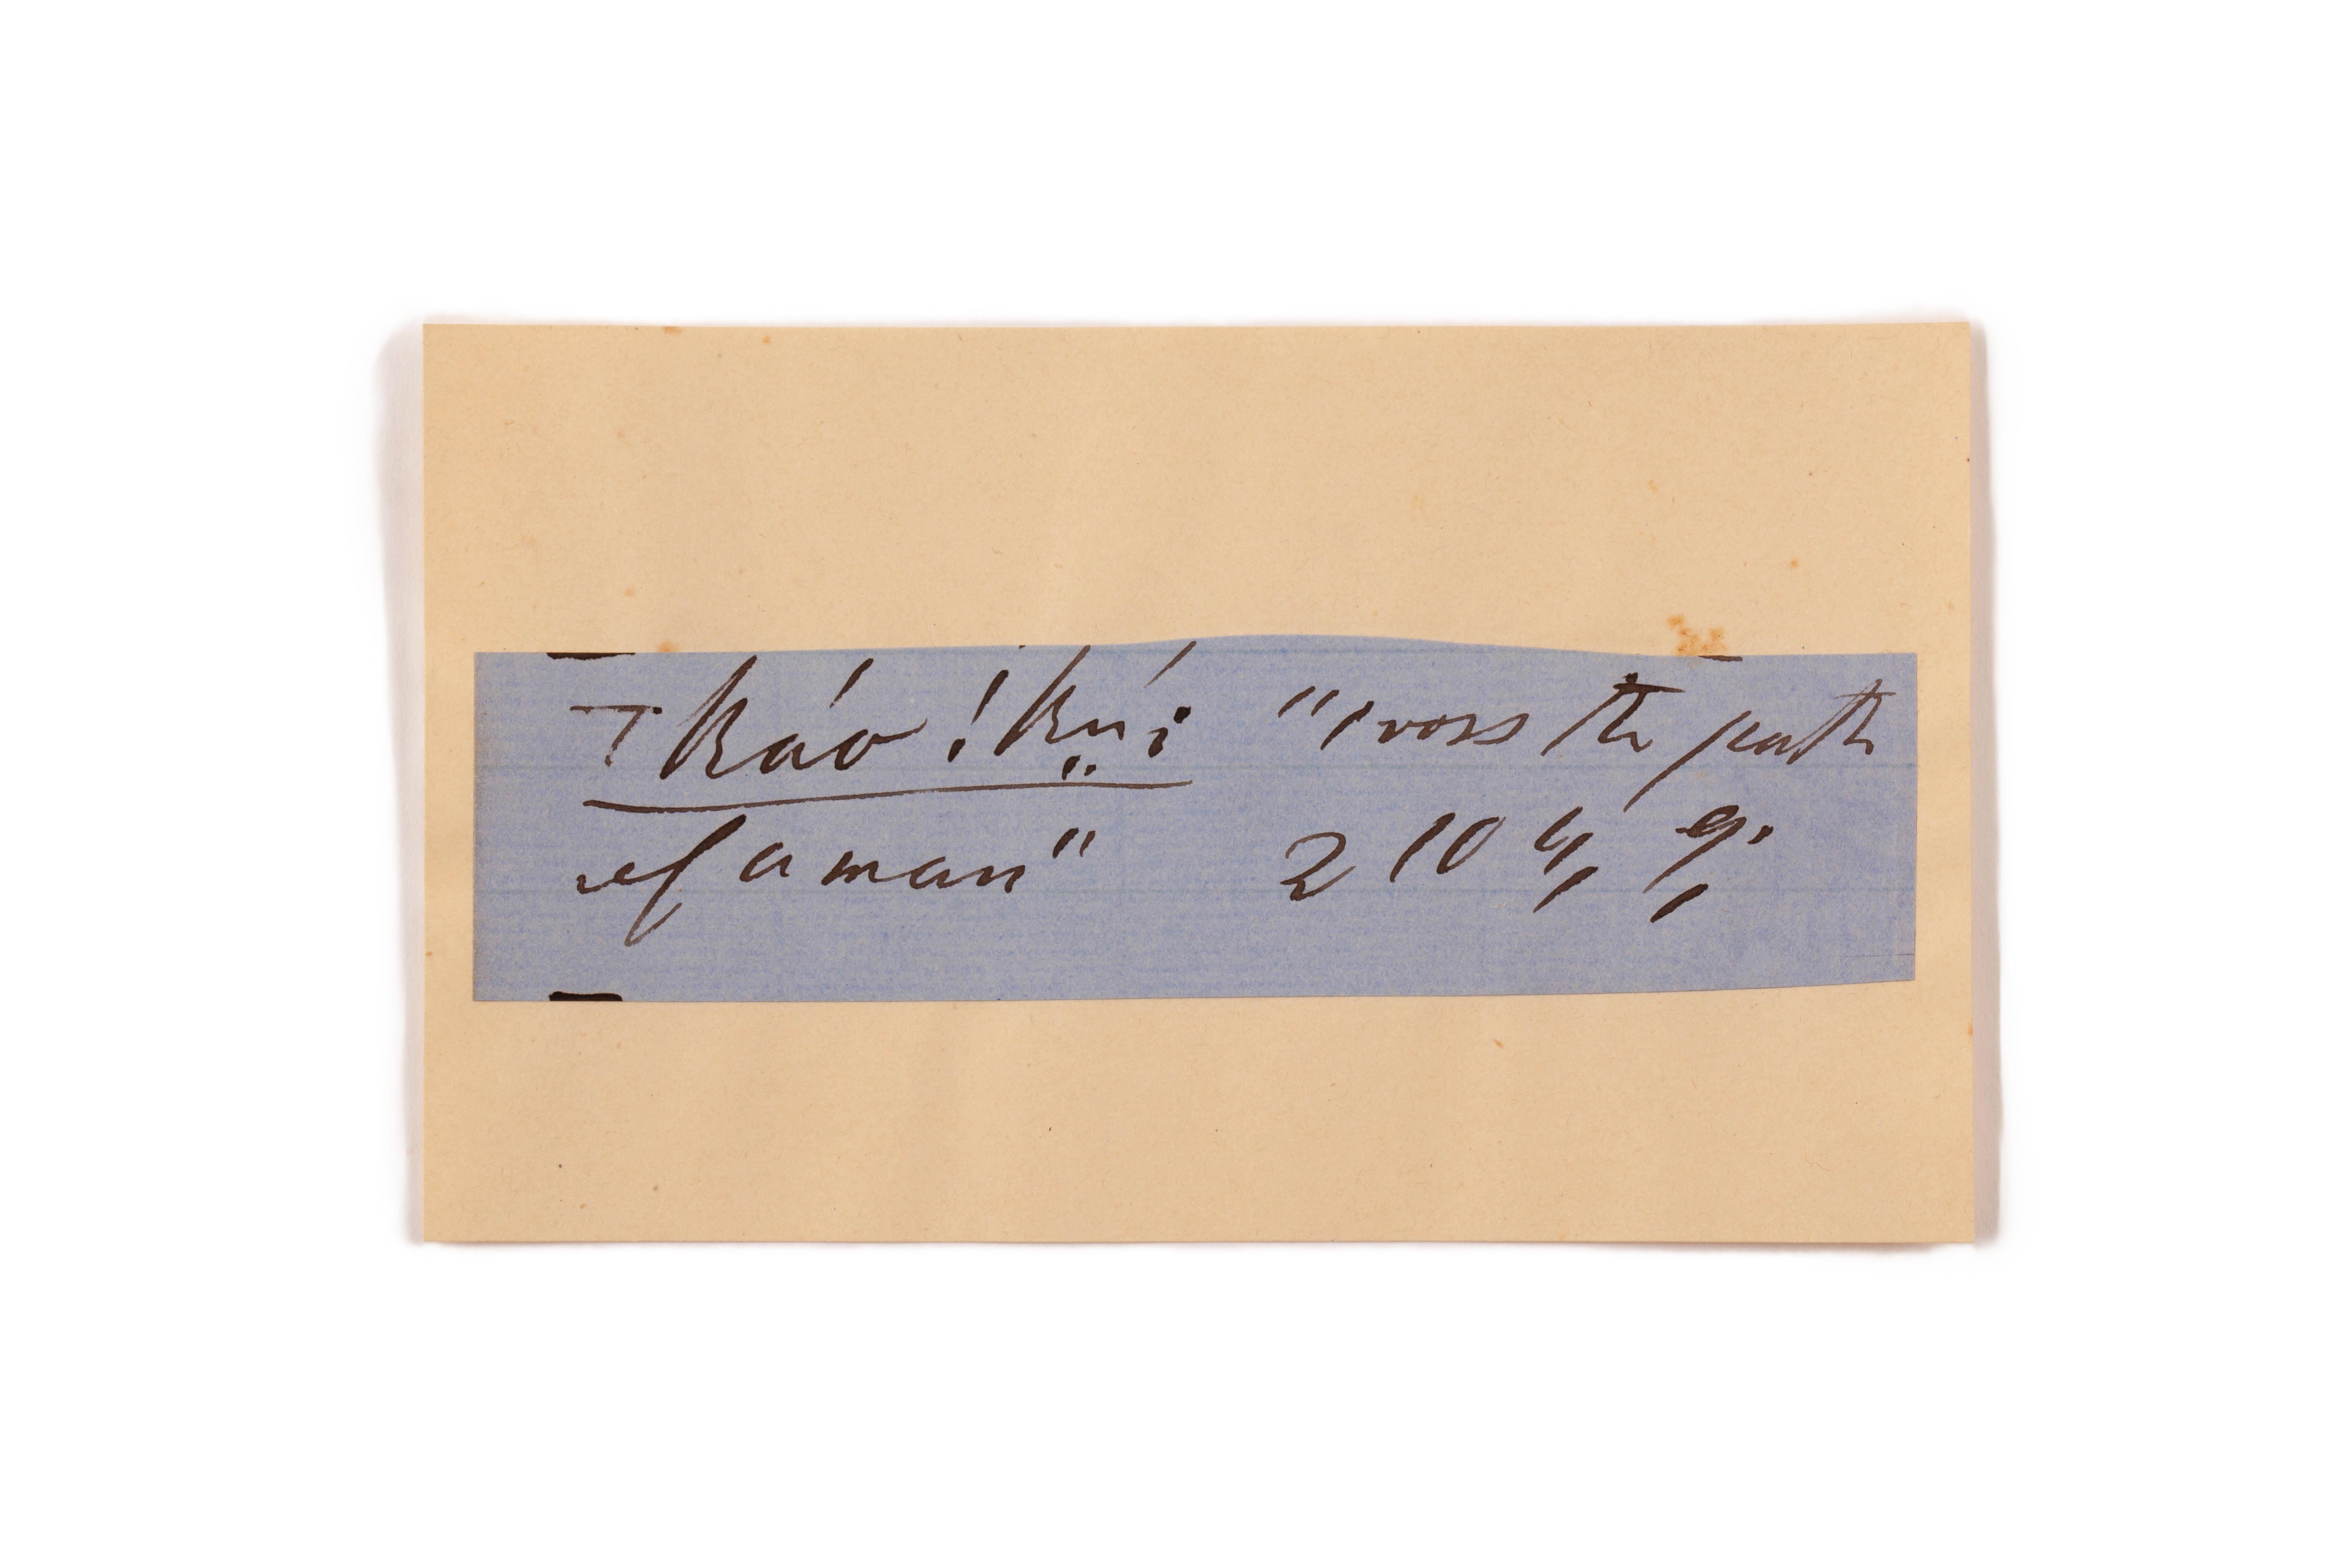 T káo !kṳí "cross the path
of a man" 2 10 4, 9.